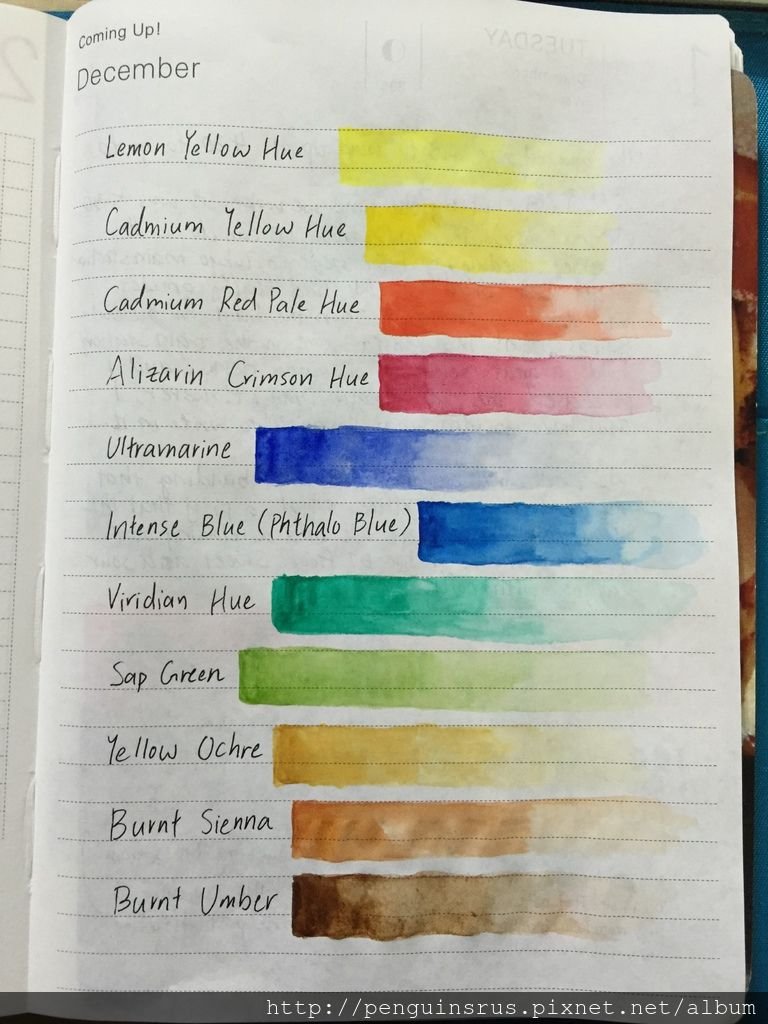 Coming Up!
December
Lemon Yellow Hue
Cadmium Yellow Hue
Cadmium Red Pale Hue
Alizarin Crimson Hue
Ultramarine
Intense Blue (Phthalo Blue)
Viridian Hue
Sap Green
Yellow Ochre
Burnt Sienna
Burnt Umber
http://penguinsrus.pixnet.net/album
TUESDAY
1
2